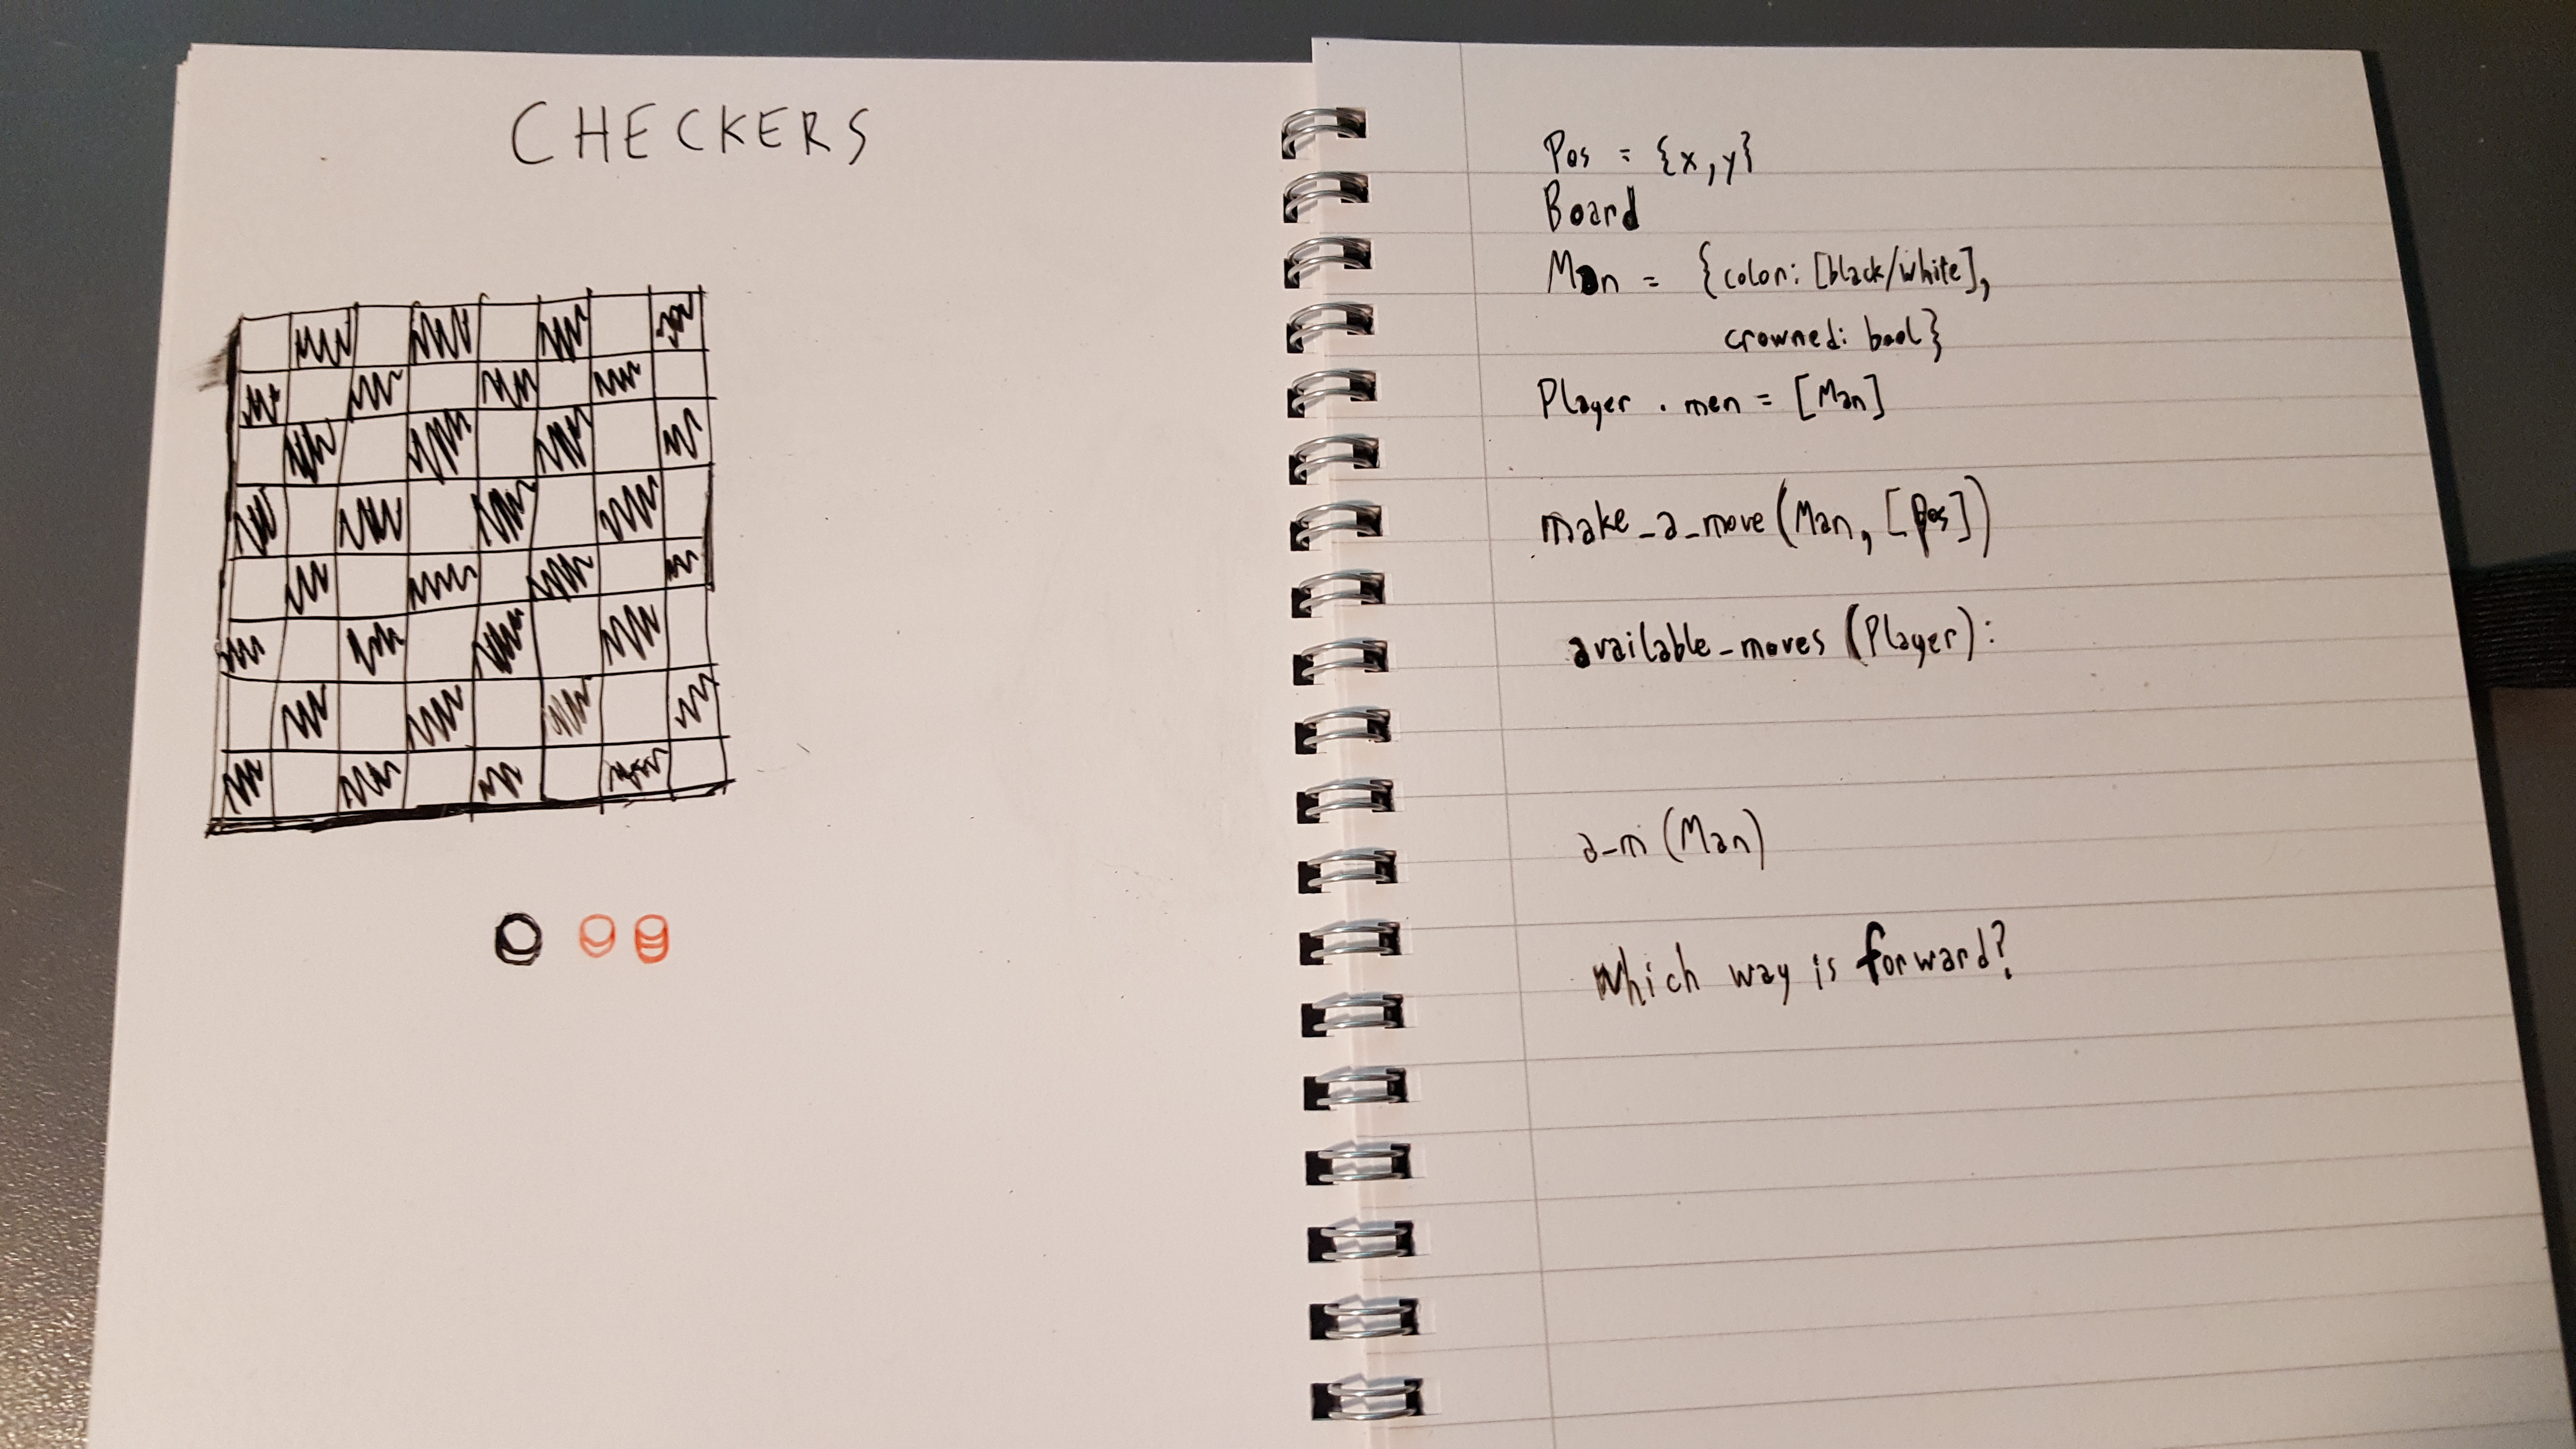 CHECKERS
Pos = {x, y}
Board
Man = {color: [black/white],
crowned: bool}
Player . men = [Man]
make_a_move (Man, [pos])
available_moves (Player):
a_m (Man)
Which way is forward?